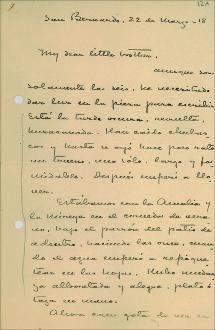 12A
San Bernardo, 22 de Marzo - 18
My dear little brother,
aunque son
solamente las seis, he necesitado
dar luz en la pieza para escribir.
Está la tarde oscura, revuelta,
Han caído chubas-
cos y hasta se oyó hace poco rato
un trueno, uno sólo, largo y for-
midable. Después empezó a llo-
ver.
Estábamos con la Amalia y
la en el comedor de vera-
no, bajo el parrón del patio de
adentro, haciendo las once, cuan-
do el agua empezó a repique-
tear en las hojas. Hubo
ya alborotada y alegre, plato ó
taza en mano.
Ahora caen gotas de vez en